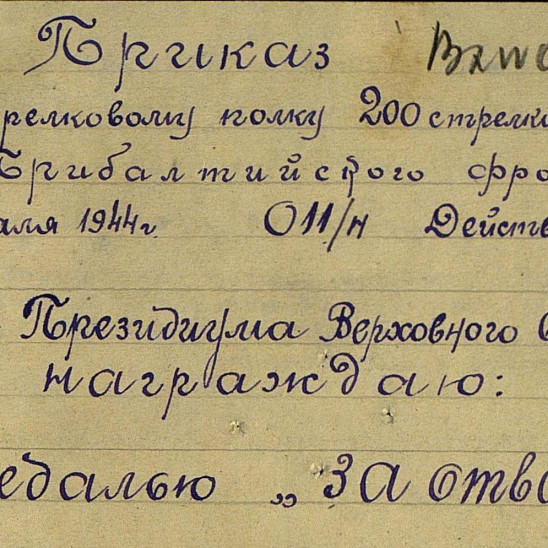 Приказ
релковому полку 200 стрелко
Прибалтийского фро
аля 1944г. 011/н Действ
Президиума Верховного С
награждаю:
едалью „ЗА отва